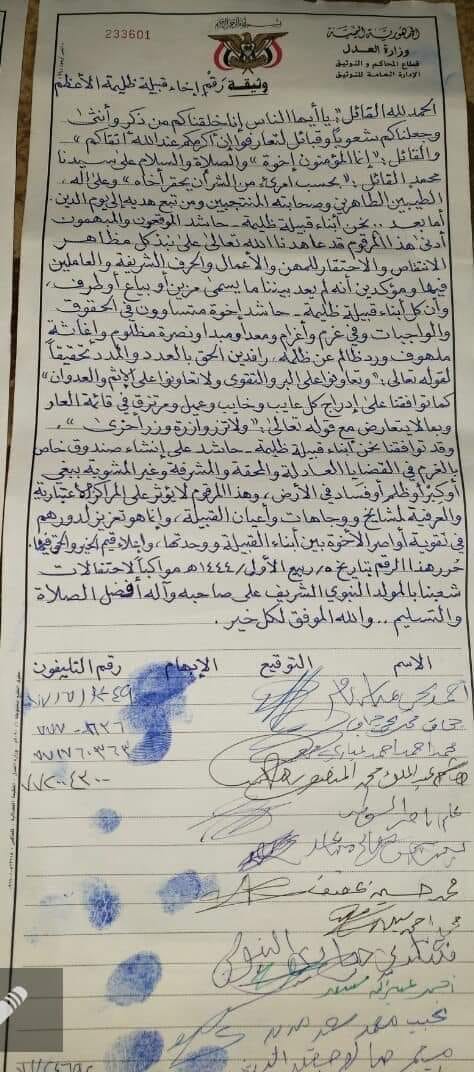 بسم الله الرحمن الرحيم
الجمهورية اليمنية
وزارة العدل
قطاع المحاكم والتوثيق
الإدارة العامة للتوثيق
233601
وثيقة رقم إخاء قبيلة ظليمة الأعظم
الحمد لله القائل: "يا أيها الناس إنا خلقناكم من ذكر وأنثى
وجعلناكم شعوباً وقبائل لتعارفوا إن أكرمكم عند الله أتقاكم"
والقائل: "إنما المؤمنون إخوة" والصلاة والسلام على سيدنا
محمد القائل: "بحسب امرئ من الشر أن يحقر أخاه" وعلى آله
الطيبين الطاهرين وصحابته المنتجبين ومن تبع هديه إلى يوم الدين.
أما بعد.. نحن أبناء قبيلة ظليمة - حاشد الموقعون والمبهمون
أدنى هذا المرقوم قد عاهدنا الله تعالى على نبذ كل مظاهر
الانتقاص والاحتقار للمهن والأعمال والحرف الشريفة والعاملين
فيها ومؤكدين أنه لم يعد بيننا ما يسمى مزين أو بياع أو طرف،
وأن كل أبناء قبيلة ظليمة - حاشد إخوة متساوون في الحقوق
والواجبات وفي غرم وأغرام ومعدا ومبدا ونصرة مظلوم وإغاثة
ملهوف ورد ظالم عن ظلمه، رافدين الحق بالعدد والمدد تحقيقاً
لقوله تعالى: "وتعاونوا على البر والتقوى ولا تعاونوا على الإثم والعدوان"
كما توافقنا على إدراج كل عايب وخايب وعميل ومرتزق في قائمة العار
وبما لا يتعارض مع قوله تعالى: "ولا تزر وازرة وزر أخرى".
وقد توافقنا نحن أبناء قبيلة ظليمة - حاشد على إنشاء صندوق خاص
بالغرم في القضايا العادلة والمحقة والمشرفة وغير المشوبة ببغي
أو كبر أو ظلم أو فساد في الأرض، وهذا المرقوم لا يؤثر على المراكز الاعتبارية
والعرفية لمشايخ ووجاهات وأعيان القبيلة، وإنما هو تعزيز لدورهم
في تقوية أواصر الأخوة بين أبناء القبيلة ووحدتها، وإعلاء قيم الخير والحق فيها.
حرر هذا الرقم بتاريخ ٥/ربيع الأول/١٤٤٤هـ مواكباً لاحتفالات
شعبنا بالمولد النبوي الشريف على صاحبه وآله أفضل الصلاة
والتسليم... والله الموفق لكل خير.
الاسم التوقيع الإبهام رقم التليفون
محمد احمد احمد
عبدالملك محمد المنصور
محمد حسين عفيف
محمد احمد